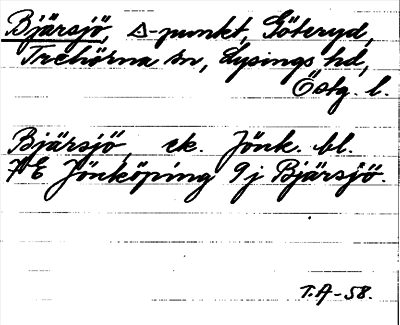 Bjärsjö, △-punkt, Göteryd,
Trehörna sn, Lysings hd,
Östg. l.
Bjärsjö ek. Jönk. bl.
7E Jönköping 9j Bjärsjö.
T.A-58.